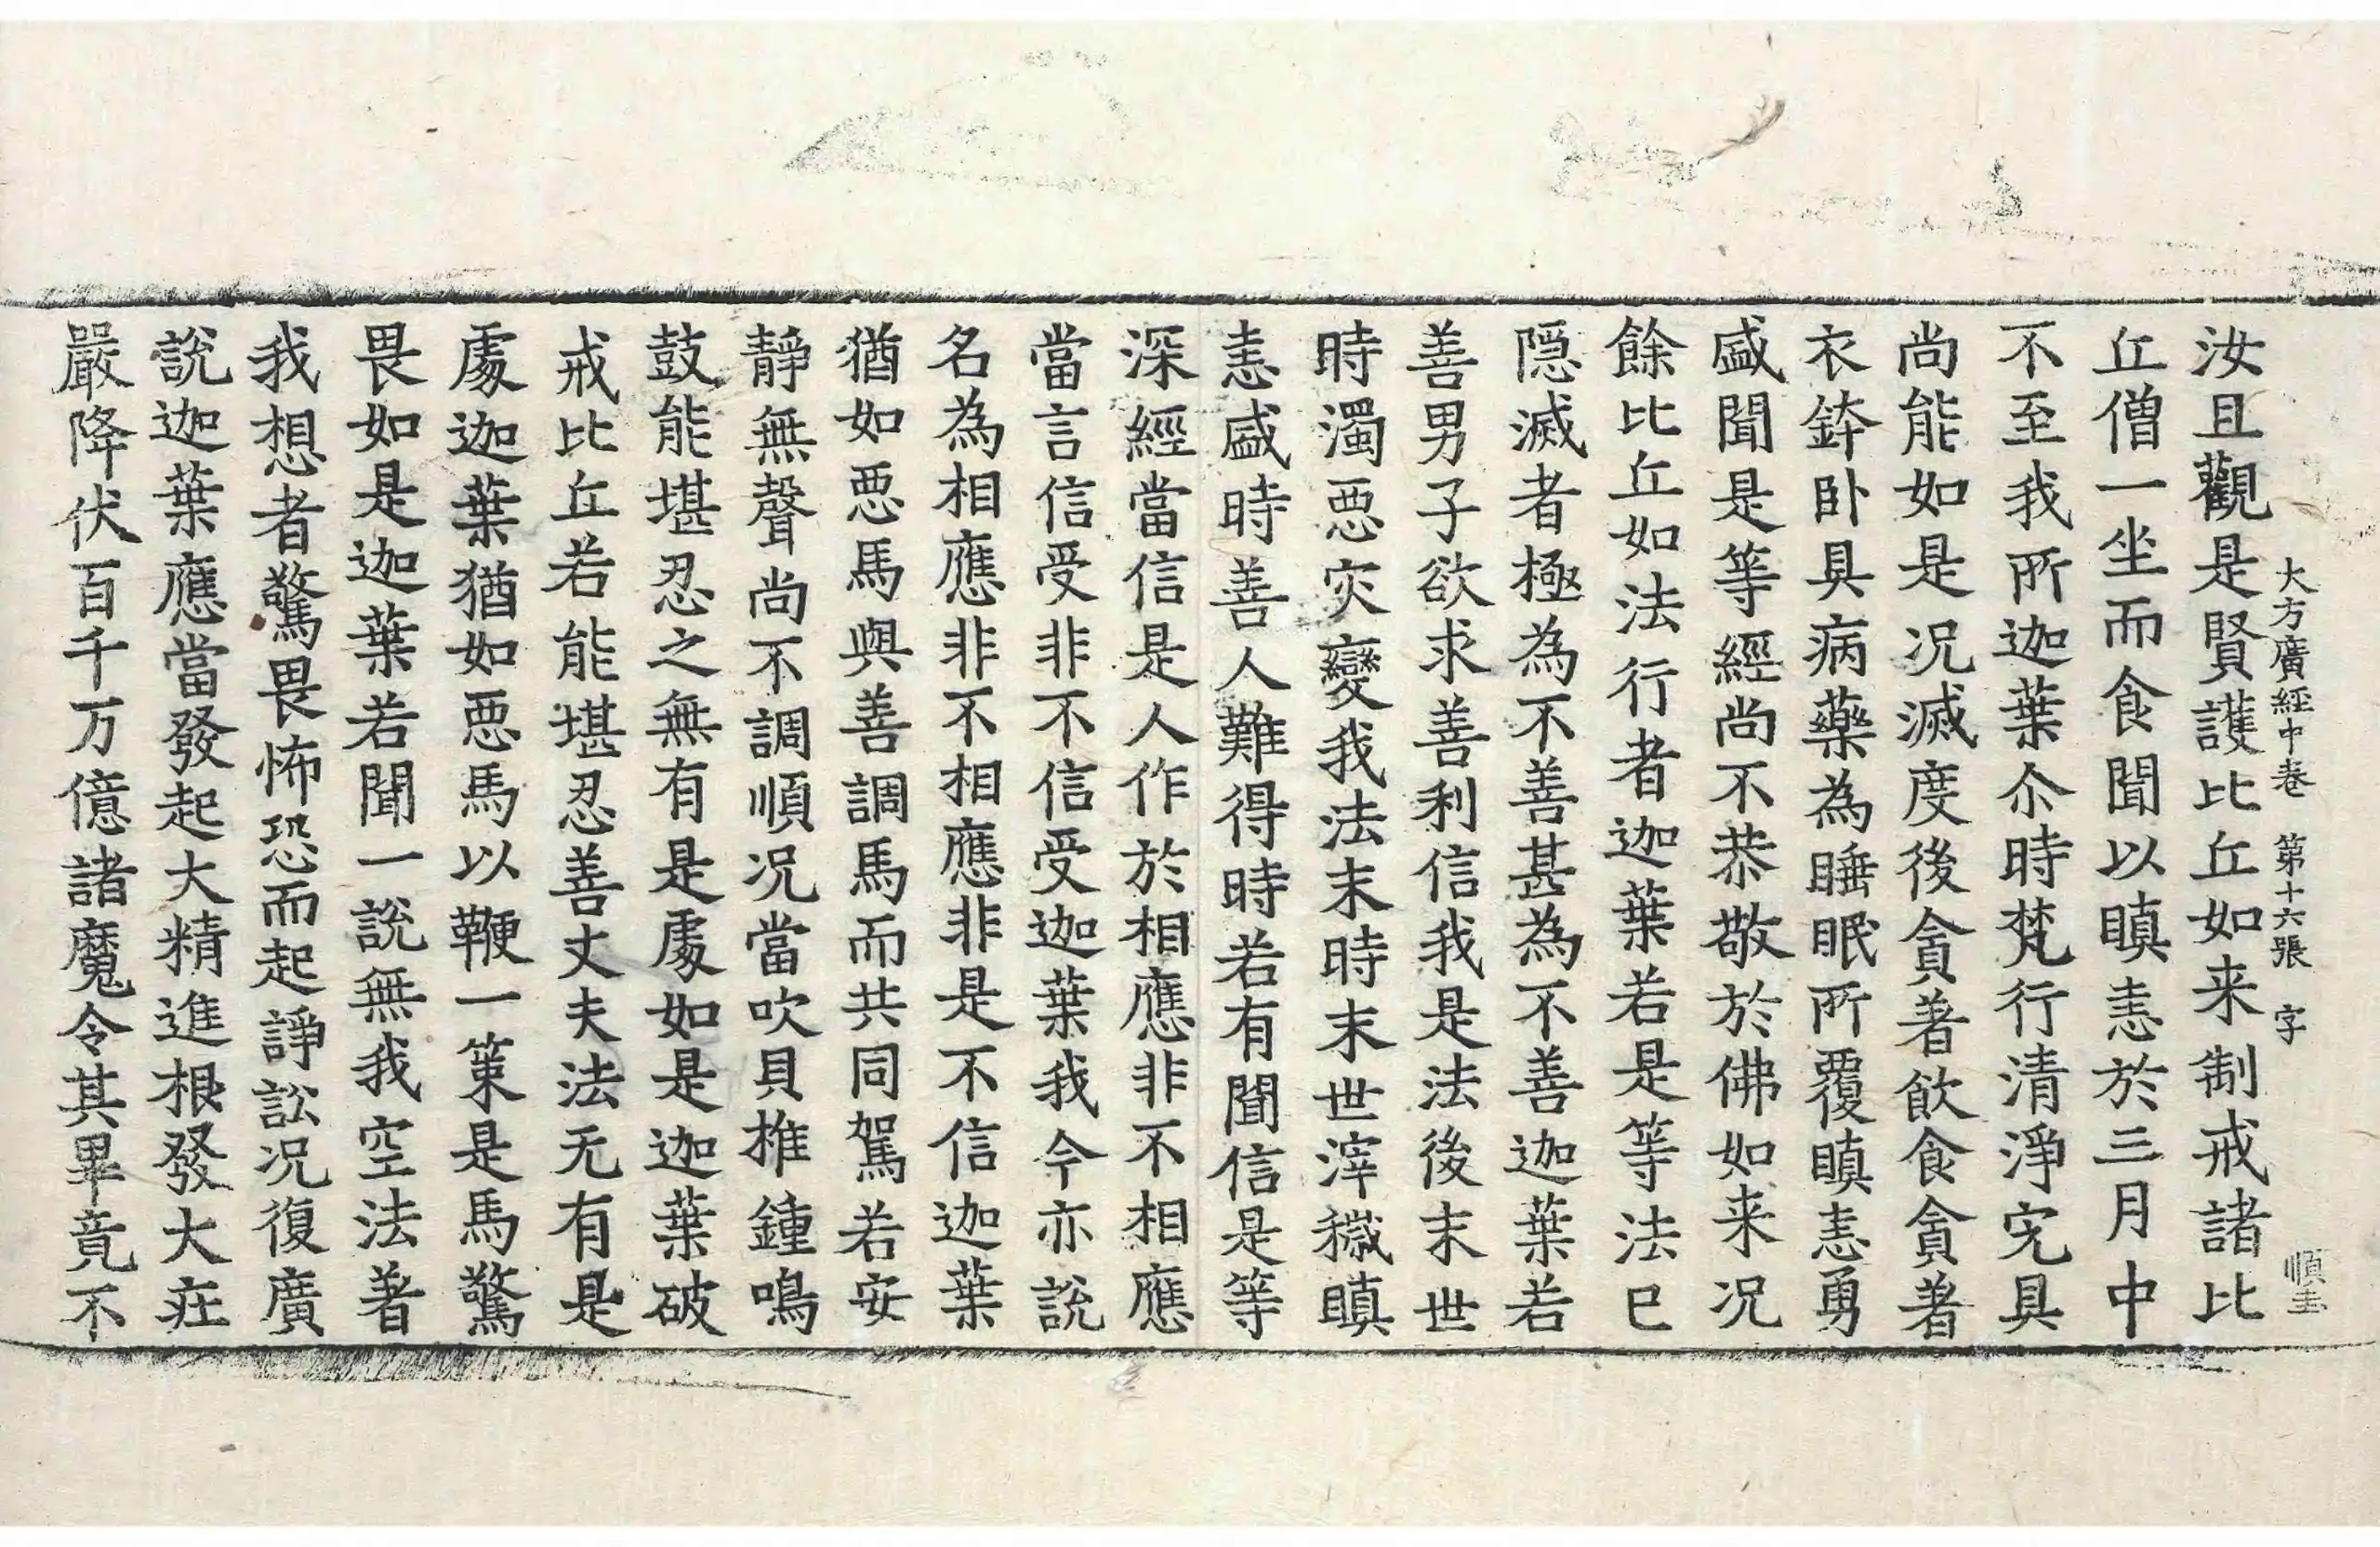 大方廣經中卷 第十六張 字 順圭
汝且觀是賢護比丘如来制戒諸比
丘僧一坐而食聞以瞋恚於三月中
不至我所迦葉尒時梵行清淨宄具
尚能如是况滅度後貪著飲食貪著
衣鉢卧具病藥為睡眠所覆瞋恚勇
盛聞是等經尚不恭敬於佛如来况
餘比丘如法行者迦葉若是等法已
隱滅者極為不善甚為不善迦葉若
善男子欲求善利信我是法後末世
時濁惡灾變我法末時末世滓穢瞋
恚盛時善人難得時若有聞信是等
深經當信是人作於相應非不相應
當言信受非不信受迦葉我今亦說
名為相應非不相應非是不信迦葉
猶如惡馬與善調馬而共同駕若安
靜無聲尚不調順况當吹貝椎鍾鳴
鼓能堪忍之無有是處如是迦葉破
戒比丘若能堪忍善丈夫法无有是
處迦葉猶如惡馬以鞭一策是馬驚
畏如是迦葉若聞一說無我空法著
我想者驚畏怖恐而起諍訟况復廣
說迦葉應當發起大精進根發大莊
嚴降伏百千万億諸魔令其畢竟不